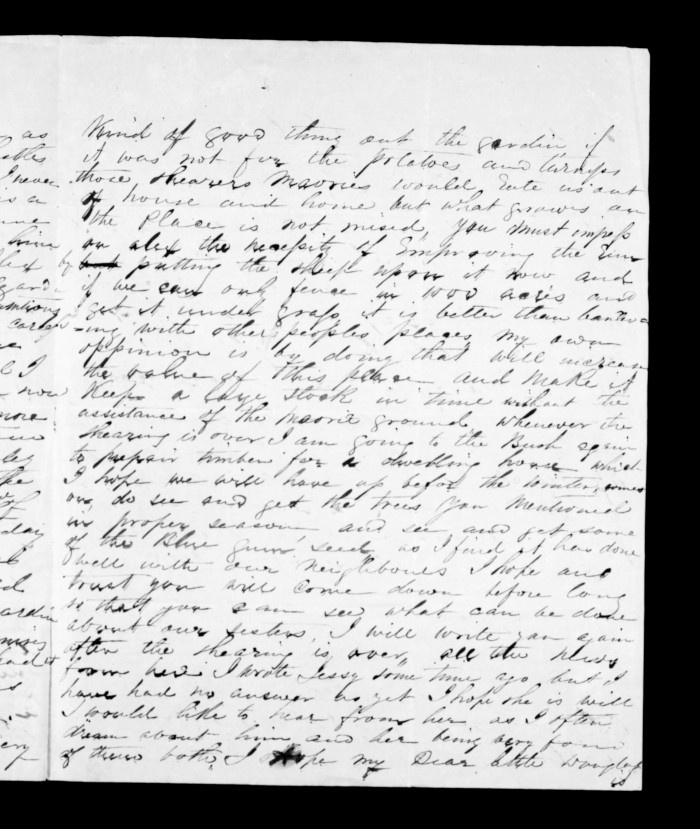 as
Kind of good thing out the gardin if
it was not for the potatoes and turnips
I never
those shearers Maories would Eate us out
of house and home but what grows on
the Place is not missed, you must impress
him
on alex the necesity of Improving the Run
by
by putting the sheep upon it now and
if we can only fence in 1000 acres and
get it under grass it is better than
-ing with other peoples places my own
oppinion is by doing that will increase
I
the value of this place and make it
now
Keep a large stock in time without the
more
assistance of the maorie ground, whenever the
shearing is over I am going to the Bush again
to prepair timber for a dwelling house which
I hope we will have up befor the winter comes
on, do see and get the trees you mentioned
day
in proper season, and see and get some
of the Blue gum seed as I find it has done
well with our neighbours I hope and
trust you will come down before long
ardin
so that you can see what can be done
about our sisters, I will write you again
after the shearing is over, all the news
from here I wrote Jessy some time ago but I
have had no answer as yet I hope she is well
I would like to hear from her as I often
dream about him and her being very fond
of them both, I hope my Dear little Douglas
is